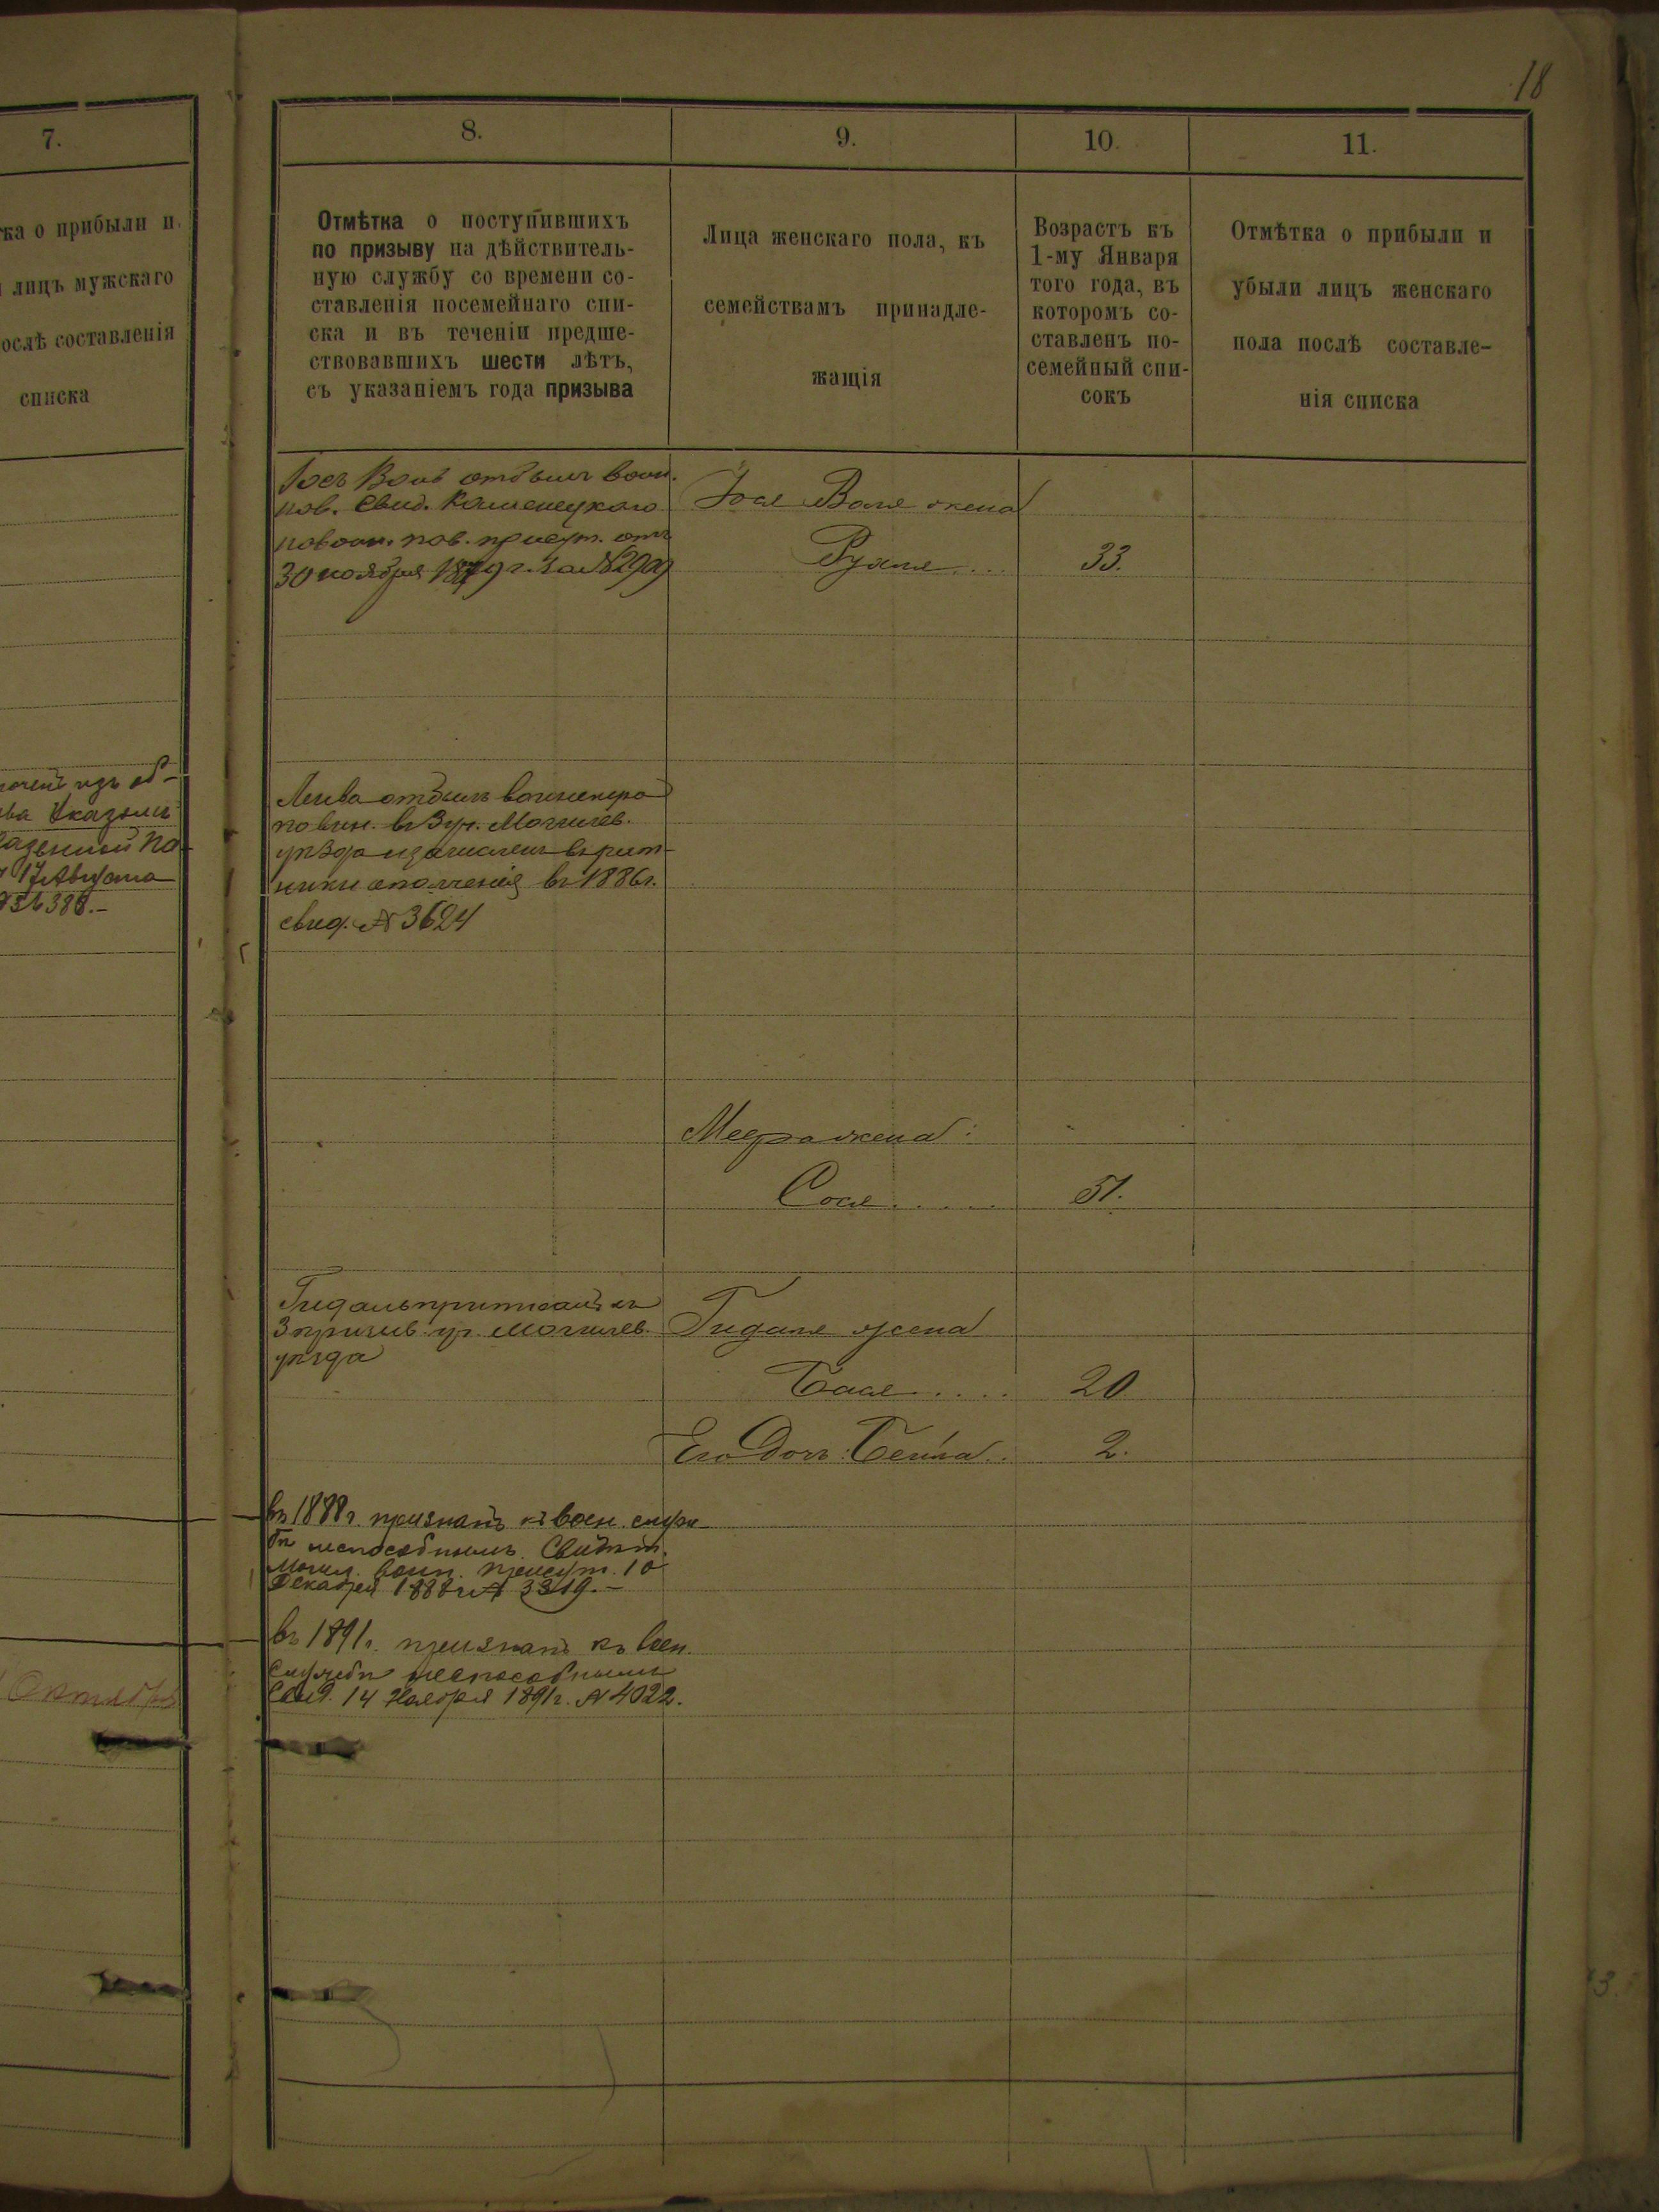 18
7.
ка о прибыли и
лицъ мужскаго
ослѣ составленія
списка
Указомъ
17 Августа
Октября
8.
Отмѣтка о поступившихъ
по призыву на дѣйствитель-
ную службу со времени со-
ставленія посемейнаго спи-
ска и въ теченіи предше-
ствовавшихъ шести лѣтъ,
съ указаніемъ года призыва
9.
Лица женскаго пола, къ
семействамъ принадле-
жащія
10.
Возрастъ къ
1-му Января
того года, въ
которомъ со-
ставленъ по-
семейный спи-
сокъ
11.
Отмѣтка о прибыли и
убыли лицъ женскаго
пола послѣ составле-
нія списка
отбылъ воин.
пов. Свид. Каменецкаго
пов. присут. отъ
30 ноября 1879 г. за №
Іося Воля жена
Рухля.... 33.
Лейва отбылъ воинскую
повин. в 3 уч. Могилев.
уѣзда и зачисленъ в рат-
ники ополченія въ 1886 г.
свид. № 3624
Меера жена:
Сося..... 51.
Гидаль приписанъ къ
3 призыв. уч. Могилев.
уѣзда
Гидаля жена
Бася.... 20
Его Дочь: Бейла.. 2.
въ 1888 г. признанъ къ воен. служ
бѣ неспособнымъ. Свидѣт.
Могил. воин. присут. 10
Декабря 1888 г. № 3319.-
въ 1891 г. признанъ къ воен.
службѣ неспособнымъ
Свид. 14 Ноября 1891 г. № 4022.